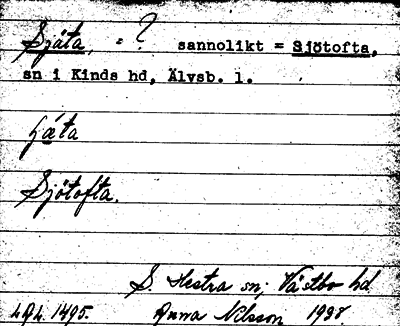 Sjäta, = ? sannolikt = Sjötofta,
sn i Kinds hd, Älvsb. l.
Sjötofta.
S. Hestra sn; Västbo hd
1495. Anna Nilsson 1938